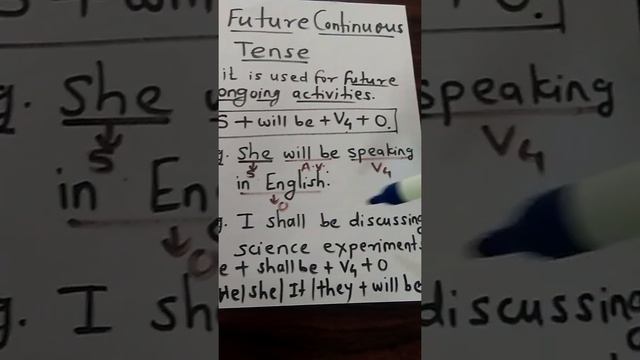 Future Continuous
Tense
it is used for future
ongoing activities.
S + will be + V4 + O.
g. She will be speaking
S A.v. V4
in English.
O
g. I shall be discussing
science experiment.
e + shall be + V4 + O
He/she/It/they + will be